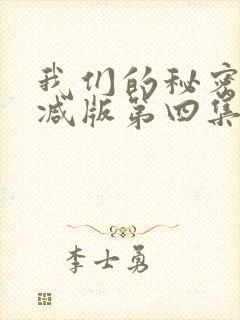 我们的秘密
减版第四集
李士勇